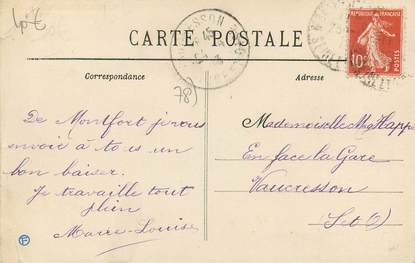 40€
CARTE POSTALE
Correspondance
Adresse
REPUBLIQUE FRANÇAISE
10
POSTES
78)
De Montfort je vous
envoie à tous un
bon baiser.
Je travaille tout
plein
Marie-Louise
Mademoiselle Mg Happ
En face la Gare
Vaucresson
(S et O)